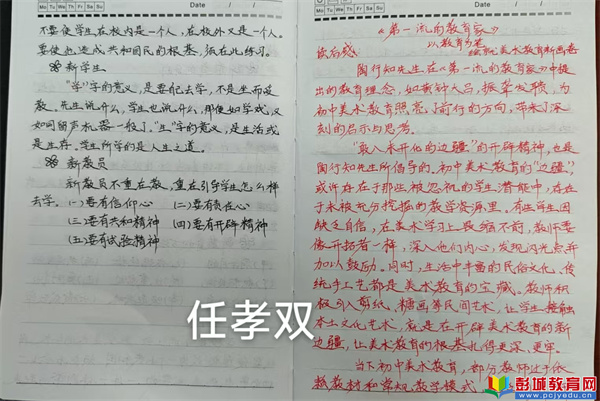 Mo Tu We Th Fr Sa Su
Date / /
不要使学生在校内是一个人,在校外又是一个人。
要使他造成共和国民的根基,须在此练习。
※ 新学生
"学"字的意义,是要自己去学,不是坐而受
教。先生说什么,学生也说什么,那便如学戏,又
如同留声机器一般了。"生"字的意义,是生活或
是生存。学生所学的是人生之道。
※ 新教员
新教员不重在教,重在引导学生怎么样
去学。(一)要有信仰心 (二)要有责任心
(三)要有共和精神 (四)要有开辟精神
(五)要有试验精神
Mo Tu We Th Fr Sa Su
Date / /
《第一流的教育家》
读后感 以教育为基
美术教育新画卷
陶行知先生在《第一流的教育家》中提
出的教育理念,如黄钟大吕,振聋发聩,为
初中美术教育照亮了前行的方向,带来了深
刻的启示与思考。
"敢入未开化的边疆"的开辟精神,也是
陶行知先生所倡导的。初中美术教育的"边疆"
或许存在于那些被忽视的学生潜能中,存在
于未被充分挖掘的教学资源里。有些学生因
缺乏自信,在美术学习上畏缩不前,教师要
像开拓者一样,深入他们内心,发现闪光点并
加以鼓励。同时,生活中丰富的民俗文化、传
统手工艺都是美术教育的宝藏。教师积
极引入剪纸、糖画等民间艺术,让学生接触
本土文化艺术,就是在开辟美术教育的新
边疆,让美术教育的根基扎得更深、更牢。
当下初中美术教育,部分教师过于依
赖教材和常规教学模式,
任孝双
彭城教育网
www.pcjyedu.cn